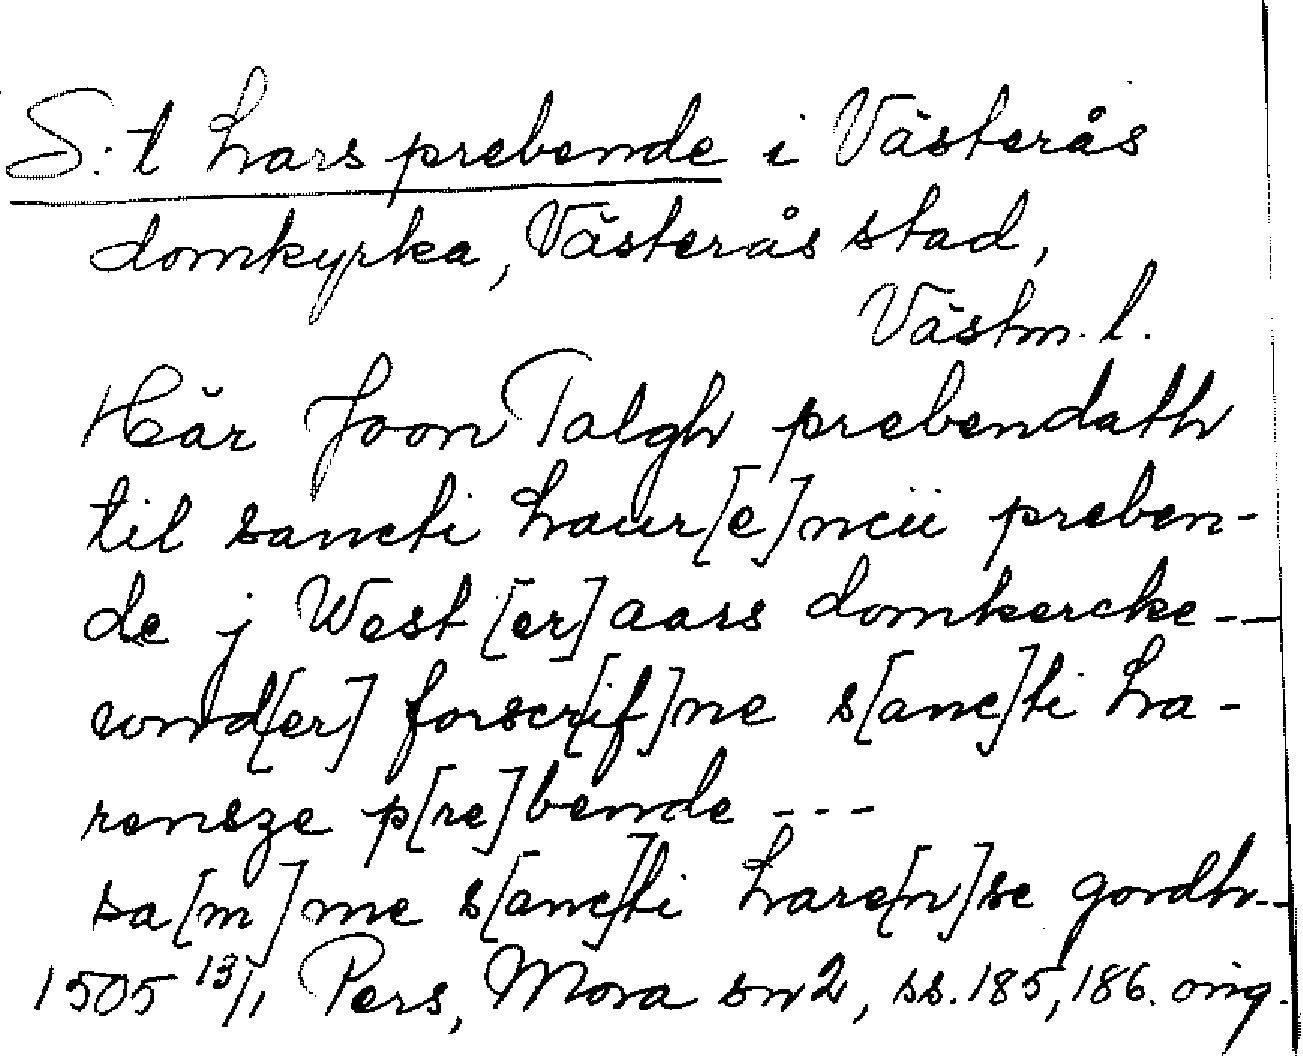 S:t Lars prebende i Västerås
domkyrka, Västerås stad,
Västm. l.
Här Joon Talgh prebendath
til sancti Laur[e]ncii preben-
de j West[er]aars domkercke --
wnd[er] forscr[if]ne s[anc]ti La-
rensze p[re]bende ---
sa[m]me s[anc]ti Lare[n]se gordh--
1505 13/1 Pers, Mora sn 2, ss. 185, 186. orig.